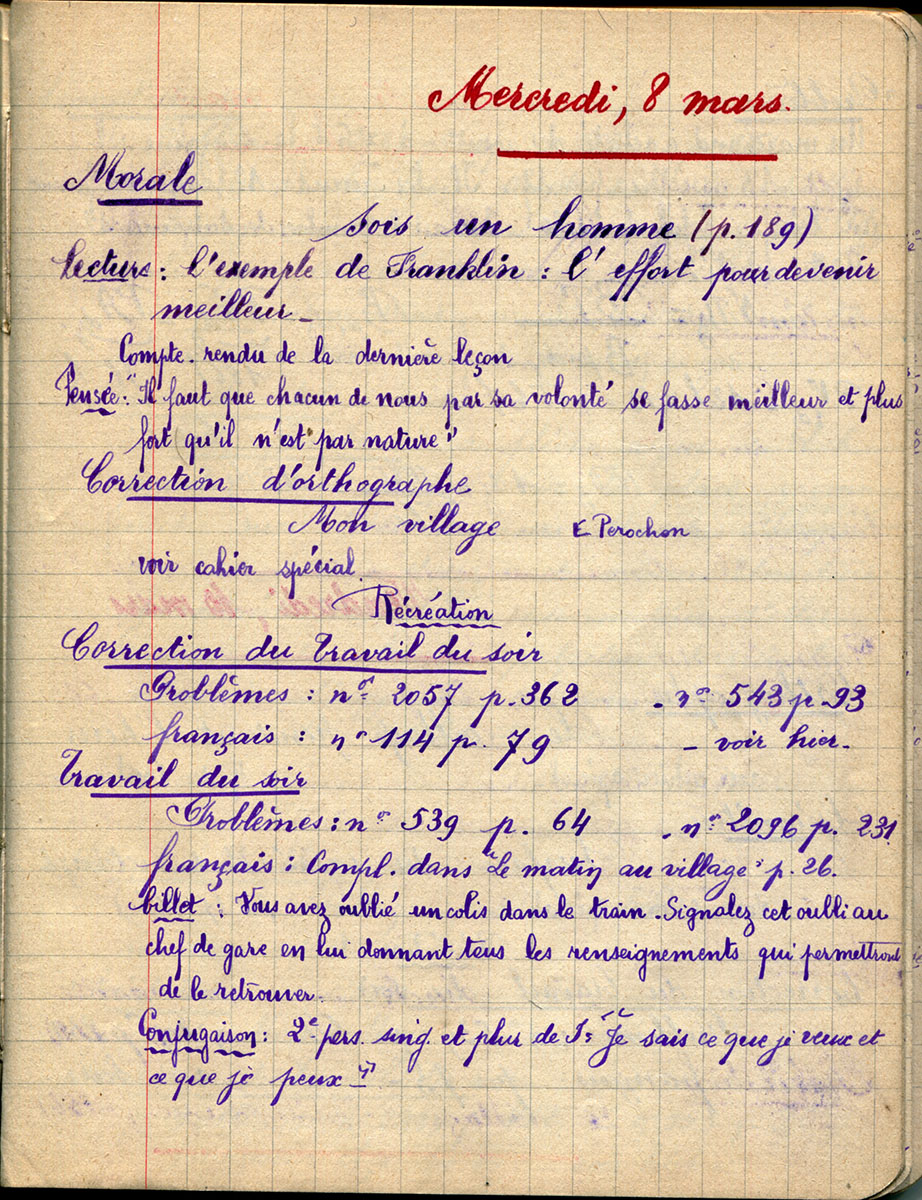 Mercredi, 8 mars.
Morale
Sois un homme (p. 189)
Lecture : l'exemple de Franklin : l'effort pour devenir
meilleur _
Compte-rendu de la dernière leçon
Pensée : "Il faut que chacun de nous par sa volonté se fasse meilleur et plus
fort qu'il n'est par nature"
Correction d'orthographe
Mon village E Perochon
voir cahier spécial.
Récréation
Correction du travail du soir
Problèmes : nº 2057 p. 362 - nº 543 p. 93
français : nº 114 p. 79 - voir hier -
Travail du soir
Problèmes : nº 539 p. 64 - nº 2096 p. 231.
français : Compl. dans "Le matin au village" p. 26.
billet : Vous avez oublié un colis dans le train. Signalez cet oubli au
chef de gare en lui donnant tous les renseignements qui permettront
de le retrouver.
Conjugaison : 2e pers. sing. et plur de "Je sais ce que je veux et
ce que je peux"